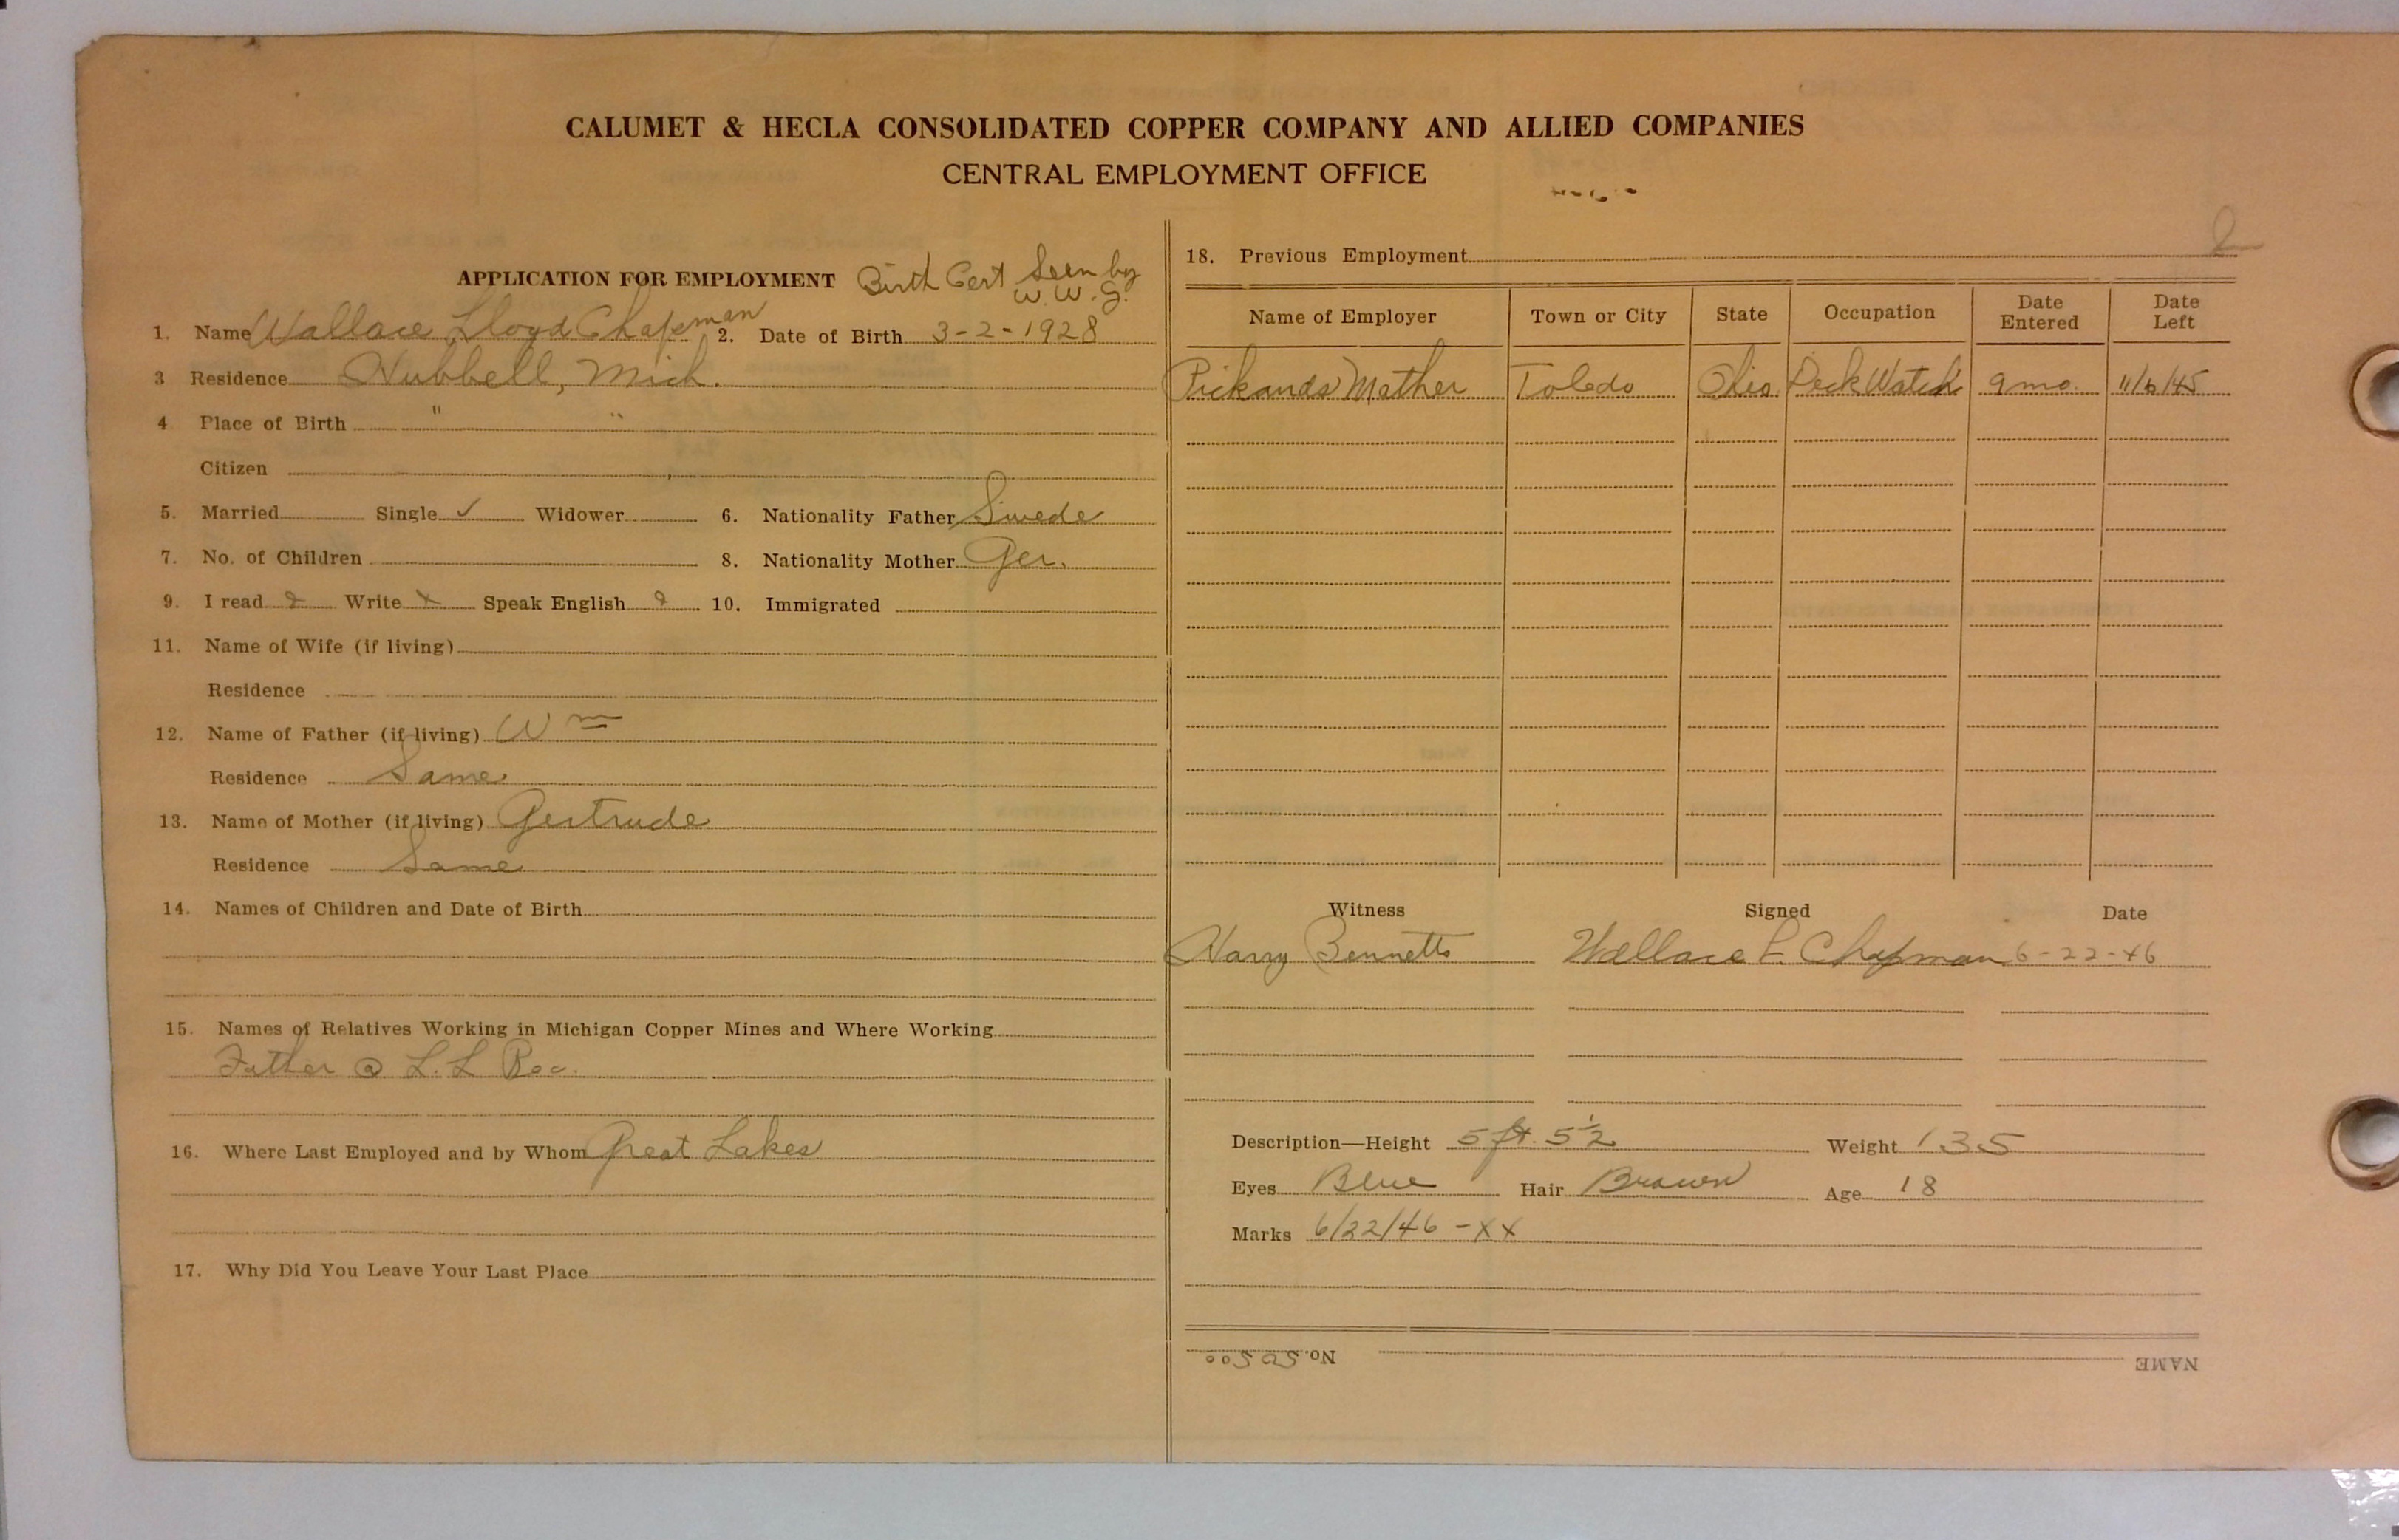 CALUMET & HECLA CONSOLIDATED COPPER COMPANY AND ALLIED COMPANIES
CENTRAL EMPLOYMENT OFFICE
APPLICATION FOR EMPLOYMENT Birth Cert Seen by
W. W. G.
1. Name Wallace Lloyd Chapman 2. Date of Birth 3-2-1928
3 Residence Hubbell, Mich.
4 Place of Birth " "
Citizen
5. Married Single ✓ Widower 6. Nationality Father Swede
7. No. of Children 8. Nationality Mother Ger.
9. I read Write x Speak English 10. Immigrated
11. Name of Wife (if living)
Residence
12. Name of Father (if living) Wm
Residence Same
13. Name of Mother (if living) Gertrude
Residence Same
14. Names of Children and Date of Birth
15. Names of Relatives Working in Michigan Copper Mines and Where Working
Father @ L. L Rec.
16. Where Last Employed and by Whom Great Lakes
17. Why Did You Leave Your Last Place
18. Previous Employment
Name of Employer Town or City State Occupation Date Entered Date Left
Pickands Mather Toledo Ohio Deck Watch 9 mo. 11/6/45
Witness Signed Date
Harry Bennetts Wallace L. Chapman 6-22-46
Description—Height 5 ft. 5½ Weight 135
Eyes Blue Hair Brown Age 18
Marks 6/22/46 -XX
NAME No.